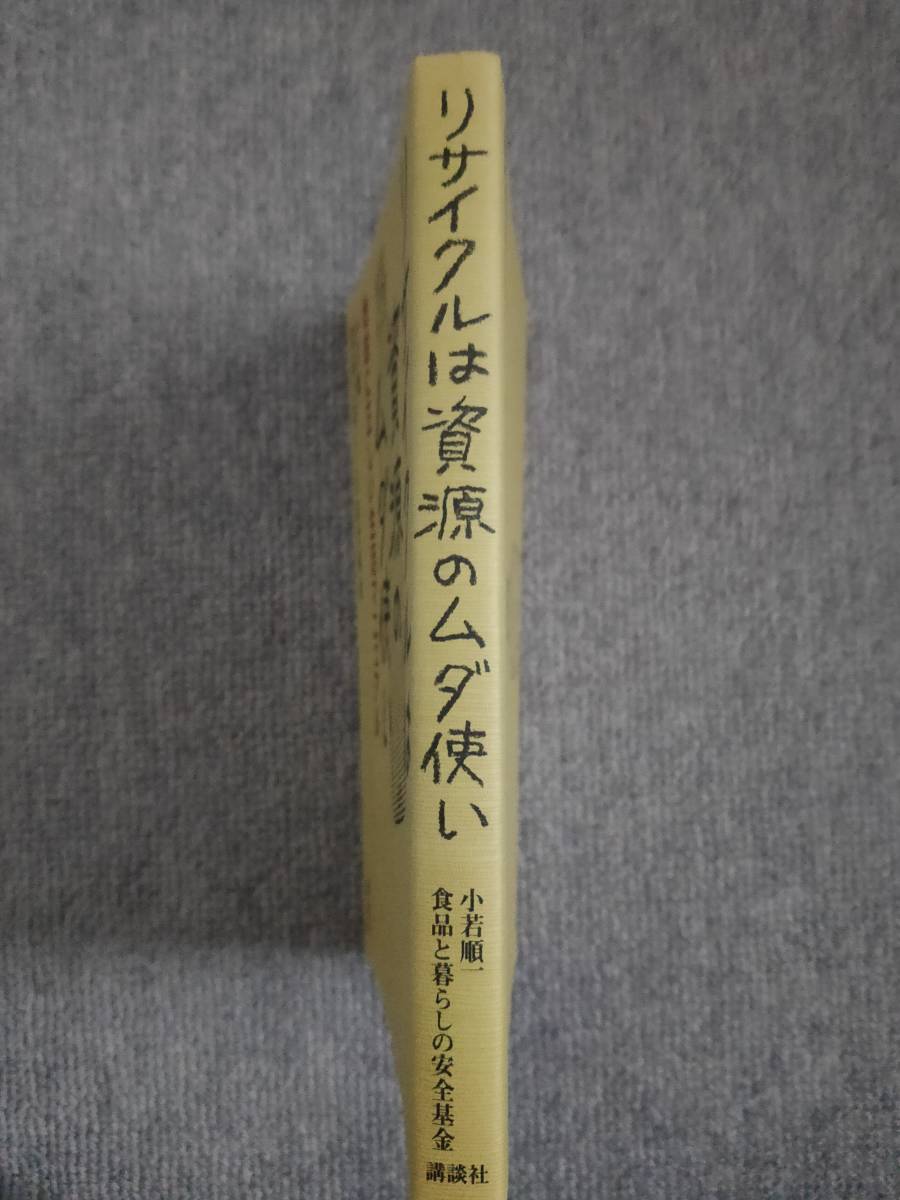 リサイクルは資源のムダ使い
小若順一
食品と暮らしの安全基金
講談社